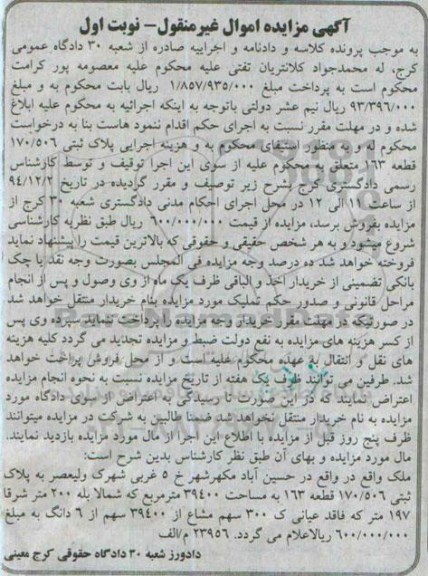 آگهی مزایده اموال غیرمنقول- نوبت اول
به موجب پرونده کلاسه و دادنامه و اجراییه صادره از شعبه ۳۰ دادگاه عمومی
کرج، له محمدجواد کلانتریان تفتی علیه محکوم علیه معصومه پور کرامت
محکوم است به پرداخت مبلغ ۱/۸۵۷/۹۳۵/۰۰۰ ریال بابت محکوم به و مبلغ
۹۳/۳۹۶/۰۰۰ ریال نیم عشر دولتی باتوجه به اینکه اجرائیه به محکوم علیه ابلاغ
شده و در مهلت مقرر نسبت به اجرای حکم اقدام ننمود هاست بنا به درخواست
محکوم له و به منظور استیفای محکوم به و هزینه اجرایی پلاک ثبتی ۱۷۰/۵۰۶
قطعه ۱۶۳ متعلق به محکوم علیه از سوی این اجرا توقیف و توسط کارشناس
رسمی دادگستری کرج بشرح زیر توصیف و مقرر گردیده در تاریخ ۹۴/۱۲/۲
از ساعت ۱۱ الی ۱۲ در محل اجرای احکام مدنی دادگستری شعبه ۳۰ کرج از
مزایده بفروش برسد، مزایده از قیمت ۶۰۰/۰۰۰/۰۰۰ ریال طبق نظریه کارشناسی
شروع میشود و به هر شخص حقیقی و حقوقی که بالاترین قیمت را پیشنهاد نماید
فروخته خواهد شد ده درصد وجه مزایده فی المجلس بصورت وجه نقد یا چک
بانکی تضمینی از خریدار اخذ و الباقی ظرف یک ماه از وی وصول و پس از انجام
مراحل قانونی و صدور حکم تملیک مورد مزایده بنام خریدار منتقل خواهد شد
در صورتیکه در مهلت مقرر خریدار وجه مزایده را پرداخت ننماید سپرده وی پس
از کسر هزینه های مزایده به نفع دولت ضبط و مزایده تجدید می گردد کلیه هزینه
های نقل و انتقال به عهده محکوم علیه است و از محل فروش پرداخت خواهد
شد. طرفین می توانند ظرف یک هفته از تاریخ مزایده نسبت به نحوه انجام مزایده
اعتراض نمایند که در این صورت تا رسیدگی به اعتراض از سوی دادگاه مورد
مزایده به نام خریدار منتقل نخواهد شد ضمنا طالبین به شرکت در مزایده میتوانند
ظرف پنج روز قبل از مزایده با اطلاع این اجرا از مال مورد مزایده بازدید نمایند.
مال مورد مزایده و بهای آن طبق نظر کارشناس بدین شرح است:
ملک واقع در واقع در حسین آباد مهرشهر خ ۵ غربی شهرک ولیعصر به پلاک
ثبتی ۱۷۰/۵۰۶ قطعه ۱۶۳ به مساحت ۳۹۴۰۰ مترمربع که شمالا بله ۲۰۰ متر شرقا
۱۹۷ متر که فاقد عیانی ک ۳۰۰ سهم مشاع از ۳۹۴۰۰ سهم از ۶ دانگ به مبلغ
۶۰۰/۰۰۰/۰۰۰ ریالاعلام می گردد. ۲۳۹۵۶ م/الف
دادورز شعبه ۳۰ دادگاه حقوقی کرج معینی